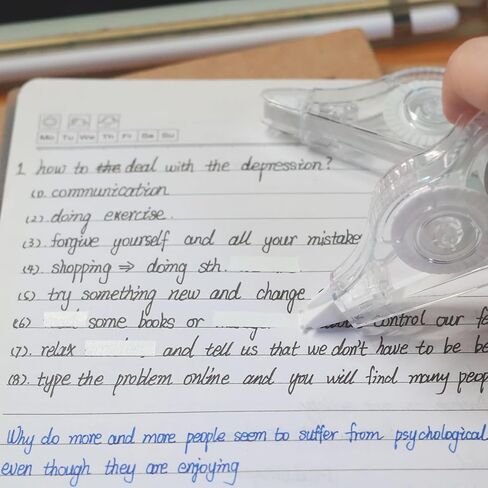 Mo Tu We Th Fr Sa Su
1. how to the deal with the depression?
(1). communication
(2). doing exercise.
(3). forgive yourself and all your mistake
(4). shopping ⇒ doing sth.
(5). try something new and change
(6). some books or control our
(7). relax and tell us that we don't have to be
(8). type the problem online and you will find many
Why do more and more people seem to suffer from psychological
even though they are enjoying